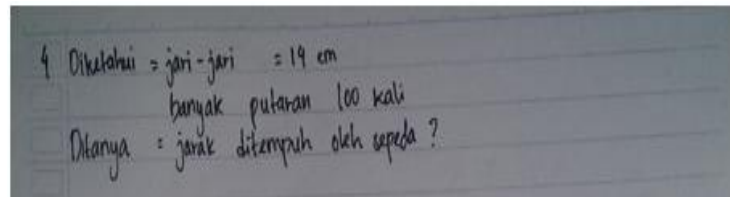 4 Diketahui = jari-jari = 14 cm
banyak putaran 100 kali
Ditanya = jarak ditempuh oleh sepeda ?